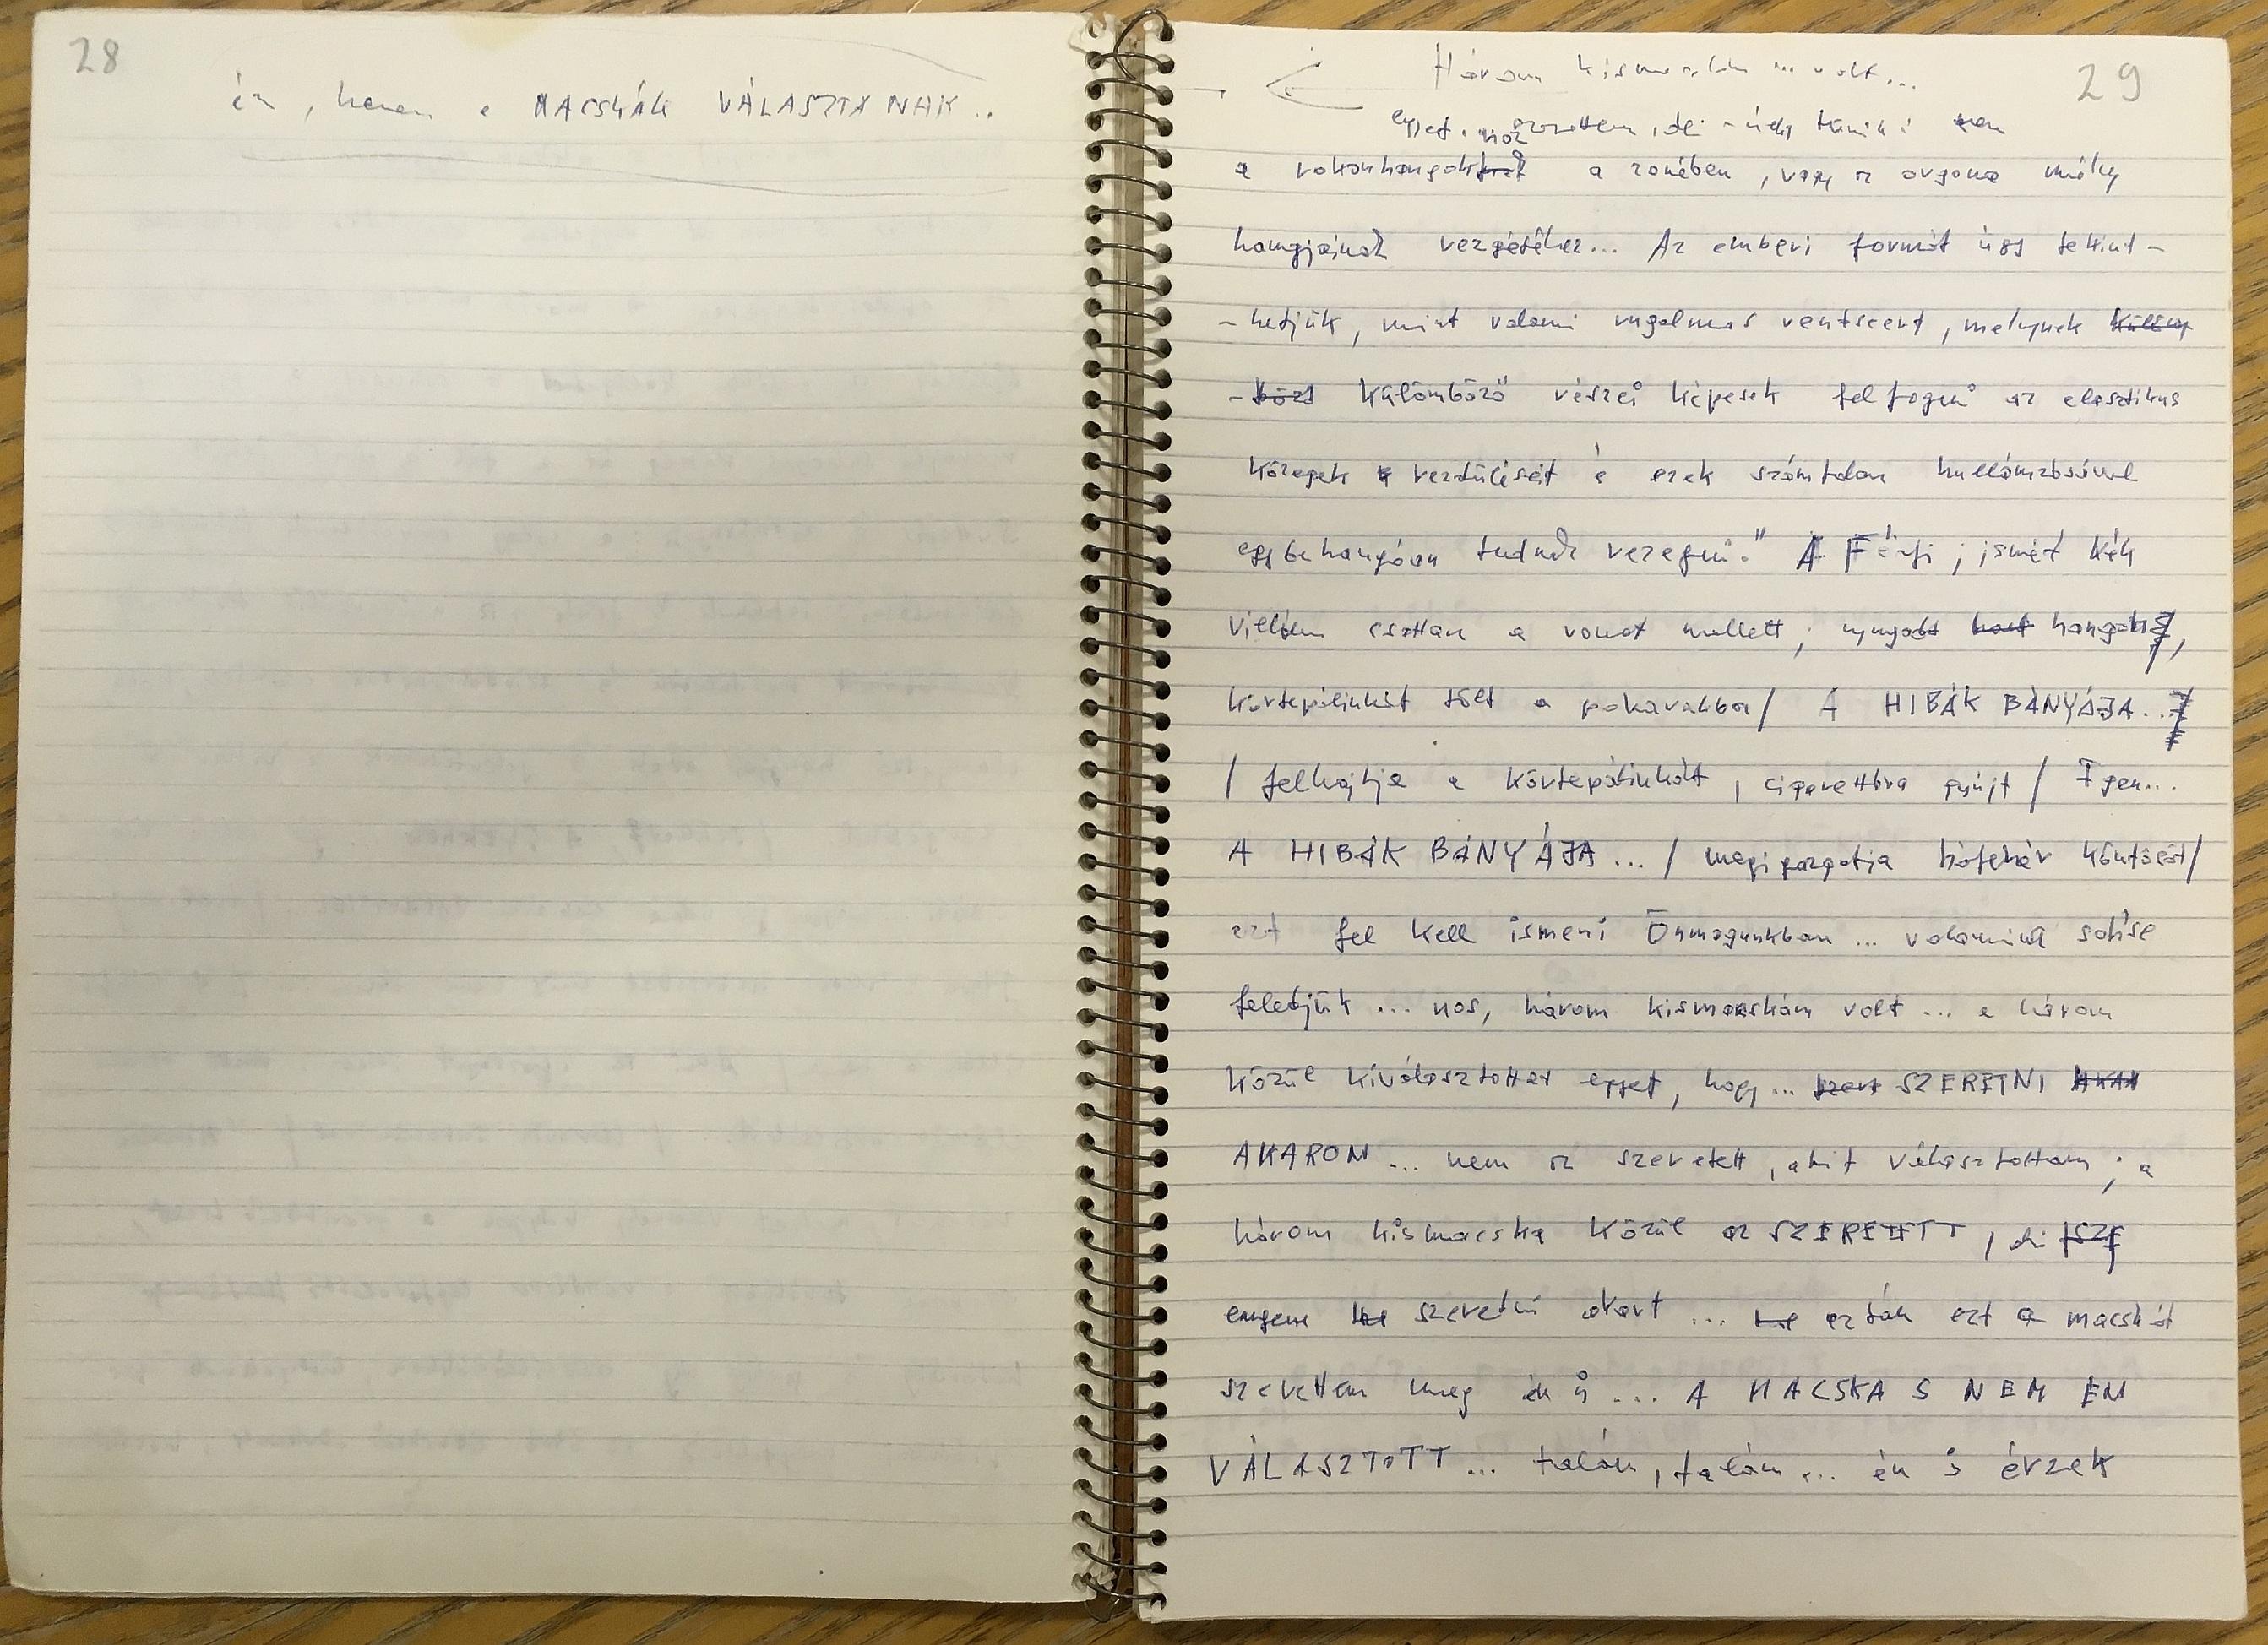 28
én, hanem a MACSKÁK VÁLASZTANAK..
29
Három kismacskám ... volt...
egyet szerettem, de úgy tűnik: nem
a rokonhangok a zenében, vagy az orgona mély
hangjainak rezgéséhez... Az emberi formát úgy tekint-
-hetjük, mint valami rugalmas rendszert, melynek külön
-böző külömböző részei képesek felfogni az elasztikus
közegek rezdüléseit é ezek számtalan hullámzásával
egybehangzóan tudnak rezegni." A Férfi, ismét kék
a vonat mellett, nyugodt hangok,
körtepálinkát tölt a poharakba/ A HIBÁK BÁNYÁJA...
/ felhajtja a körtepálinkát, cigarettára gyújt / Igen...
A HIBÁK BÁNYÁJA ... / megigazgatja hófehér köntösét/
ezt fel kell ismeni Önmagunkban ... valamint soh'se
feledjük ... nos, három kismacskám volt ... a három
közül kiválasztottam egyet, hogy ... szere SZERETNI AKAR
AKAROM ... nem az szeretett, akit választottam; a
három kismacska közül az SZERETETT, aki
engem szeretni akart ... aztán ezt a macskát
szerettem meg én is ... A MACSKA S NEM ÉN
VÁLASZTOTT ... talán, talán ... én is érzek